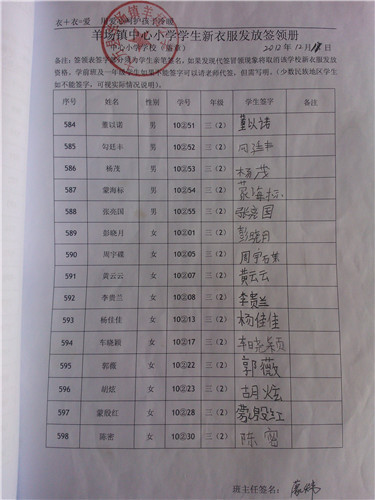 衣+衣=爱
羊场镇中心小学学生新衣服发放签领册
中心小学学校(盖章) 2012年12月18日
备注:签领表签字部分需为学生亲笔签名,如果发现代签冒领现象将取消该学校新衣服发放
资格。学前班及一年级学生如果不能签字可以请老师代签,但需写明。(少数民族地区学生
如不能签字,可视实际情况说明)。
序号 姓名 性别 学号 年级 学生签字 备注
584 董以诺 男 10②51 三(2) 董以诺
585 勾廷丰 男 10②52 三(2) 勾廷丰
586 杨茂 男 10②53 三(2) 杨茂
587 蒙海标 男 10②54 三(2) 蒙海标
588 张亮国 男 10②55 三(2) 张亮国
589 彭晓月 女 10②01 三(2) 彭晓月
590 周宇碟 女 10②05 三(2) 周宇
591 黄云云 女 10②07 三(2) 黄云云
592 李贵兰 女 10②08 三(2) 李贵兰
593 杨佳佳 女 10②13 三(2) 杨佳佳
594 车晓颖 女 10②17 三(2) 车晓颖
595 郭薇 女 10②22 三(2) 郭薇
596 胡炫 女 10②23 三(2) 胡炫
597 蒙殷红 女 10②28 三(2) 蒙殷红
598 陈密 女 10②30 三(2) 陈密
班主任签名: